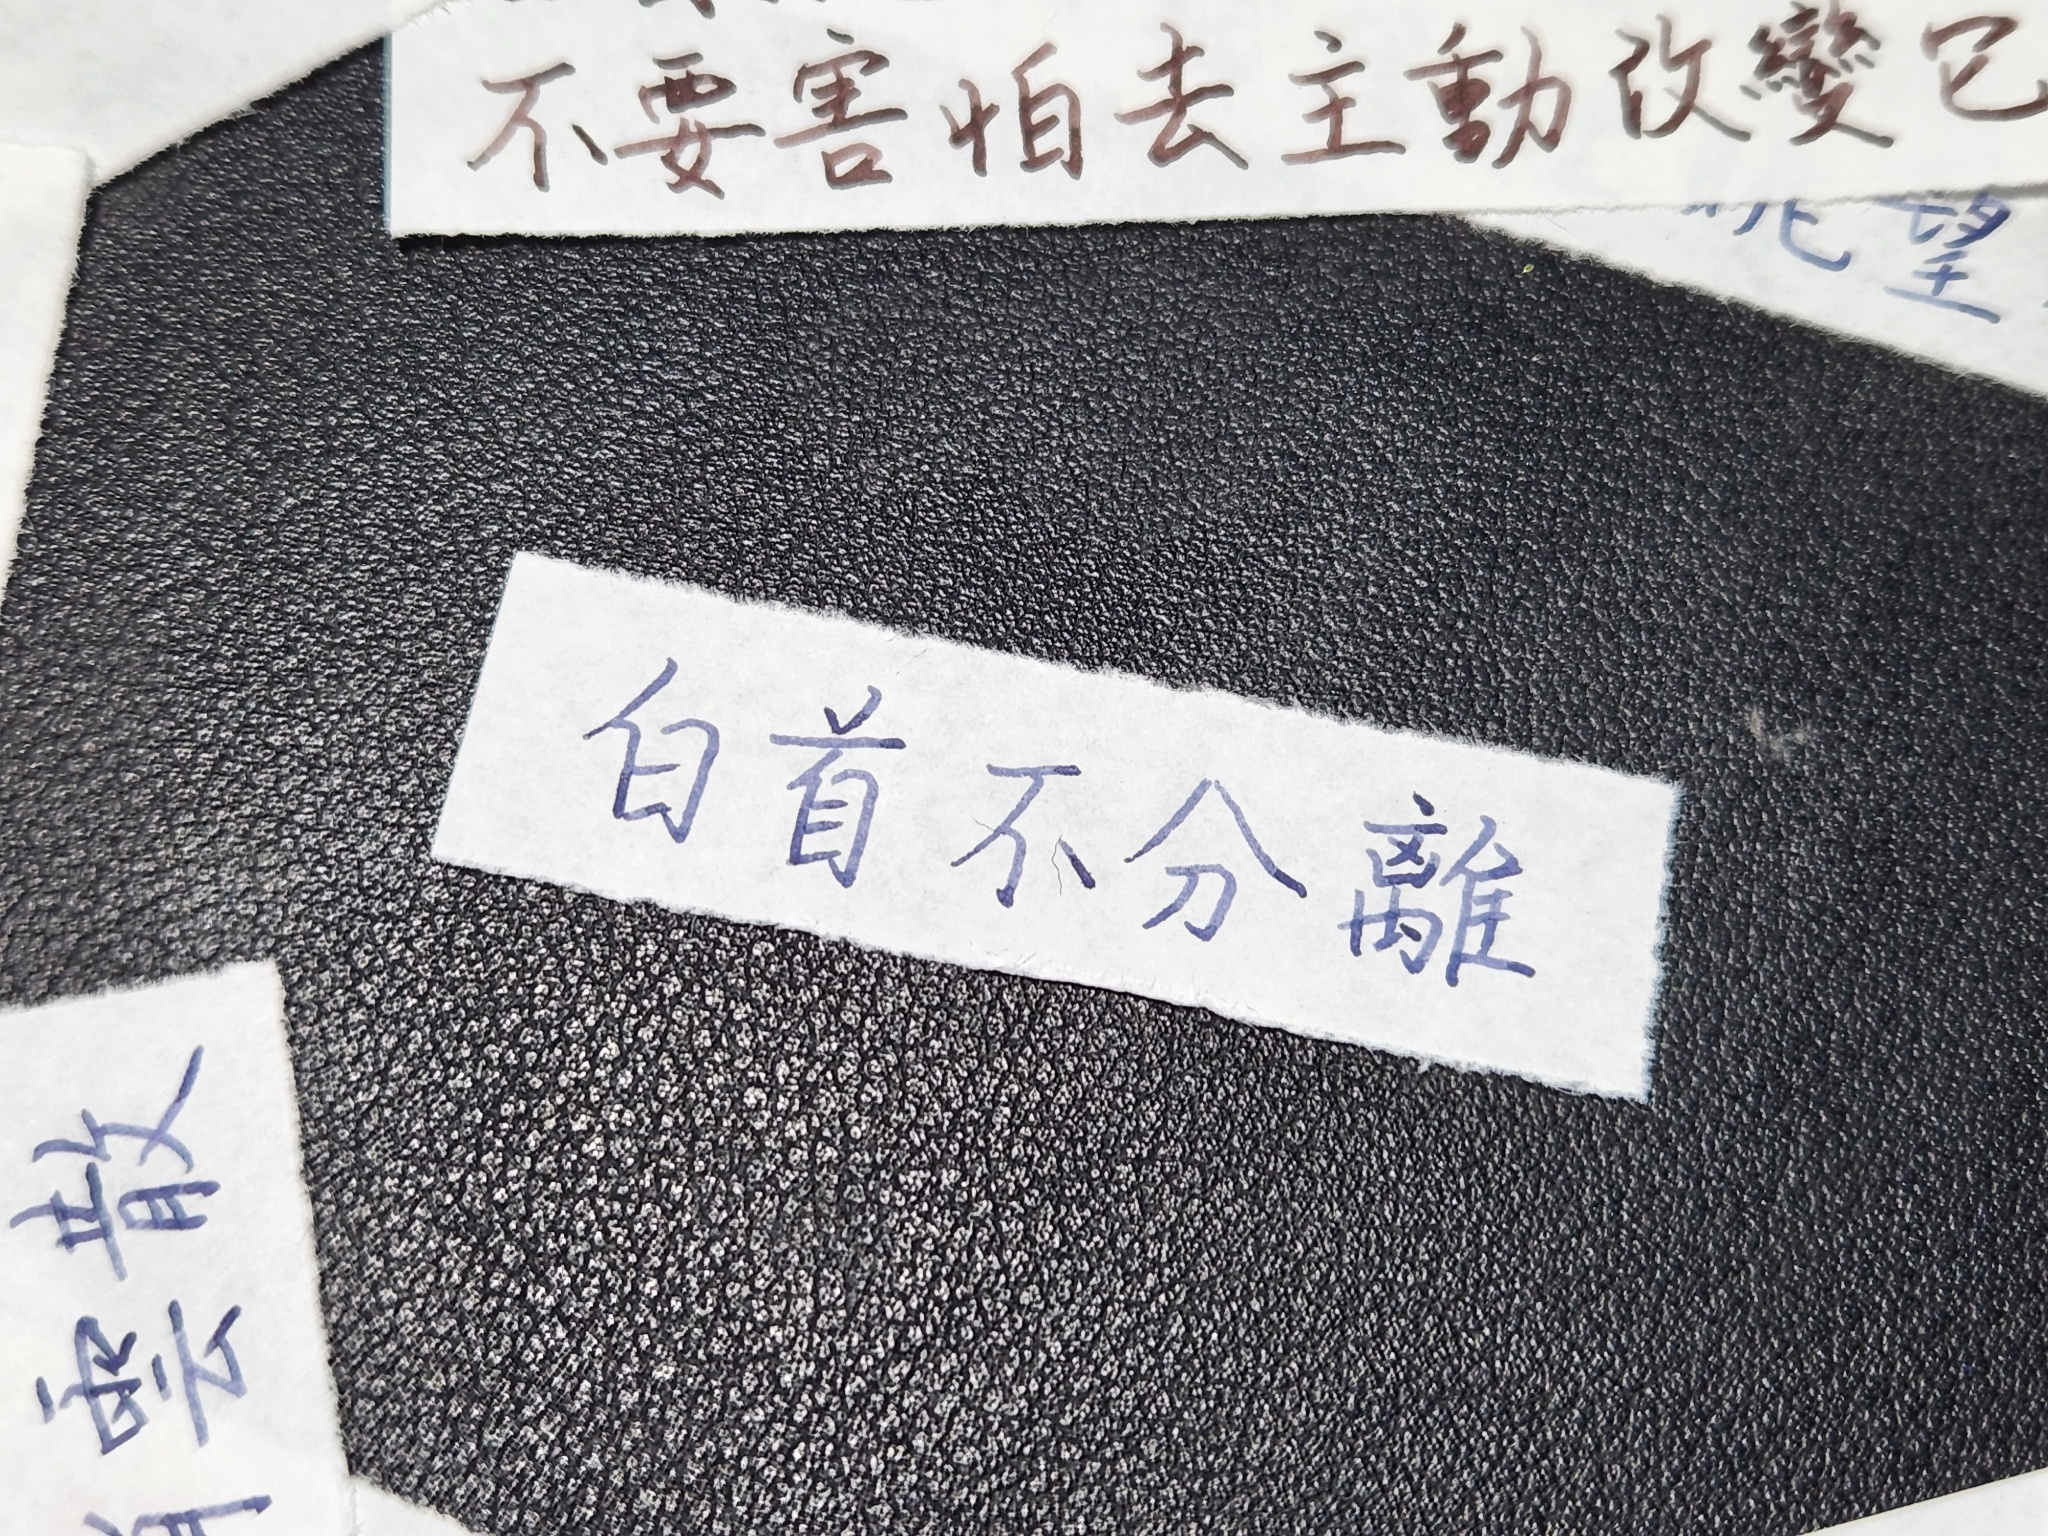 不要害怕去主動改變它
望
白首不分離
散
雲